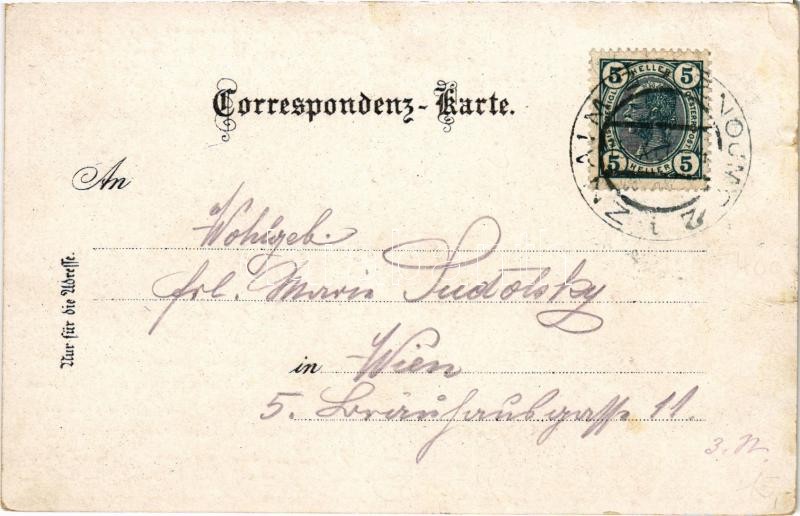 Correspondenz-Karte.
5 HELLER 5
5 HELLER 5
ZNAIM
ZNOJMO
2
An
Wohlgeb.
Frl. Marie Sudolsky
in Wien
5. Bräuhausgasse 11.
3. N.
Nur für die Adresse.